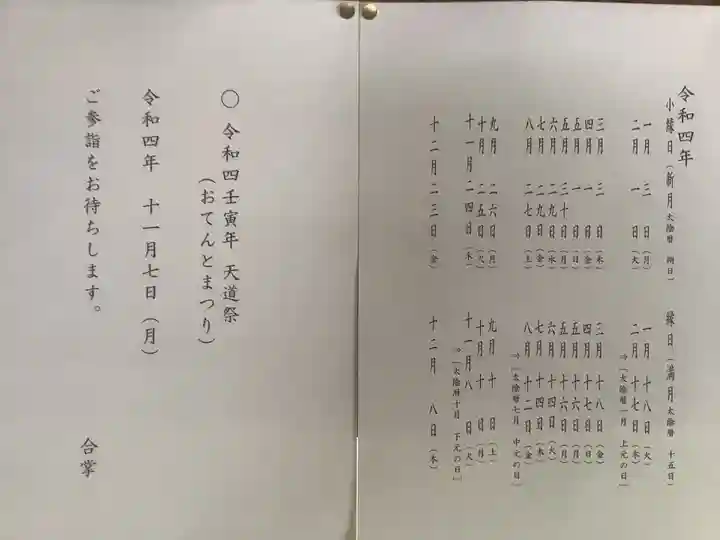 令和四年
小縁日(新月 太陰暦 朔日)
一月 三日(月)
二月 一日(火)
三月 三日(木)
四月 一日(金)
五月 一日(日)
五月 三十日(月)
六月 二九日(水)
七月 二九日(金)
八月 二七日(土)
九月 二六日(月)
十月 二五日(火)
十一月 二四日(木)
十二月 二三日(金)
縁日(満月 太陰暦 十五日)
一月 十八日(火)
二月 十七日(木)
⇒「太陰暦一月 上元の日」
三月 十八日(金)
四月 十七日(日)
五月 十六日(月)
五月 十六日(月)
六月 十四日(火)
七月 十四日(木)
八月 十二日(金)
⇒「太陰暦七月 中元の日」
九月 十日(土)
十月 十日(月)
十一月 八日(火)
⇒「太陰暦十月 下元の日」
十二月 八日(木)
○ 令和四壬寅年 天道祭
(おてんとまつり)
令和四年 十一月七日(月)
ご参詣をお待ちします。
合掌